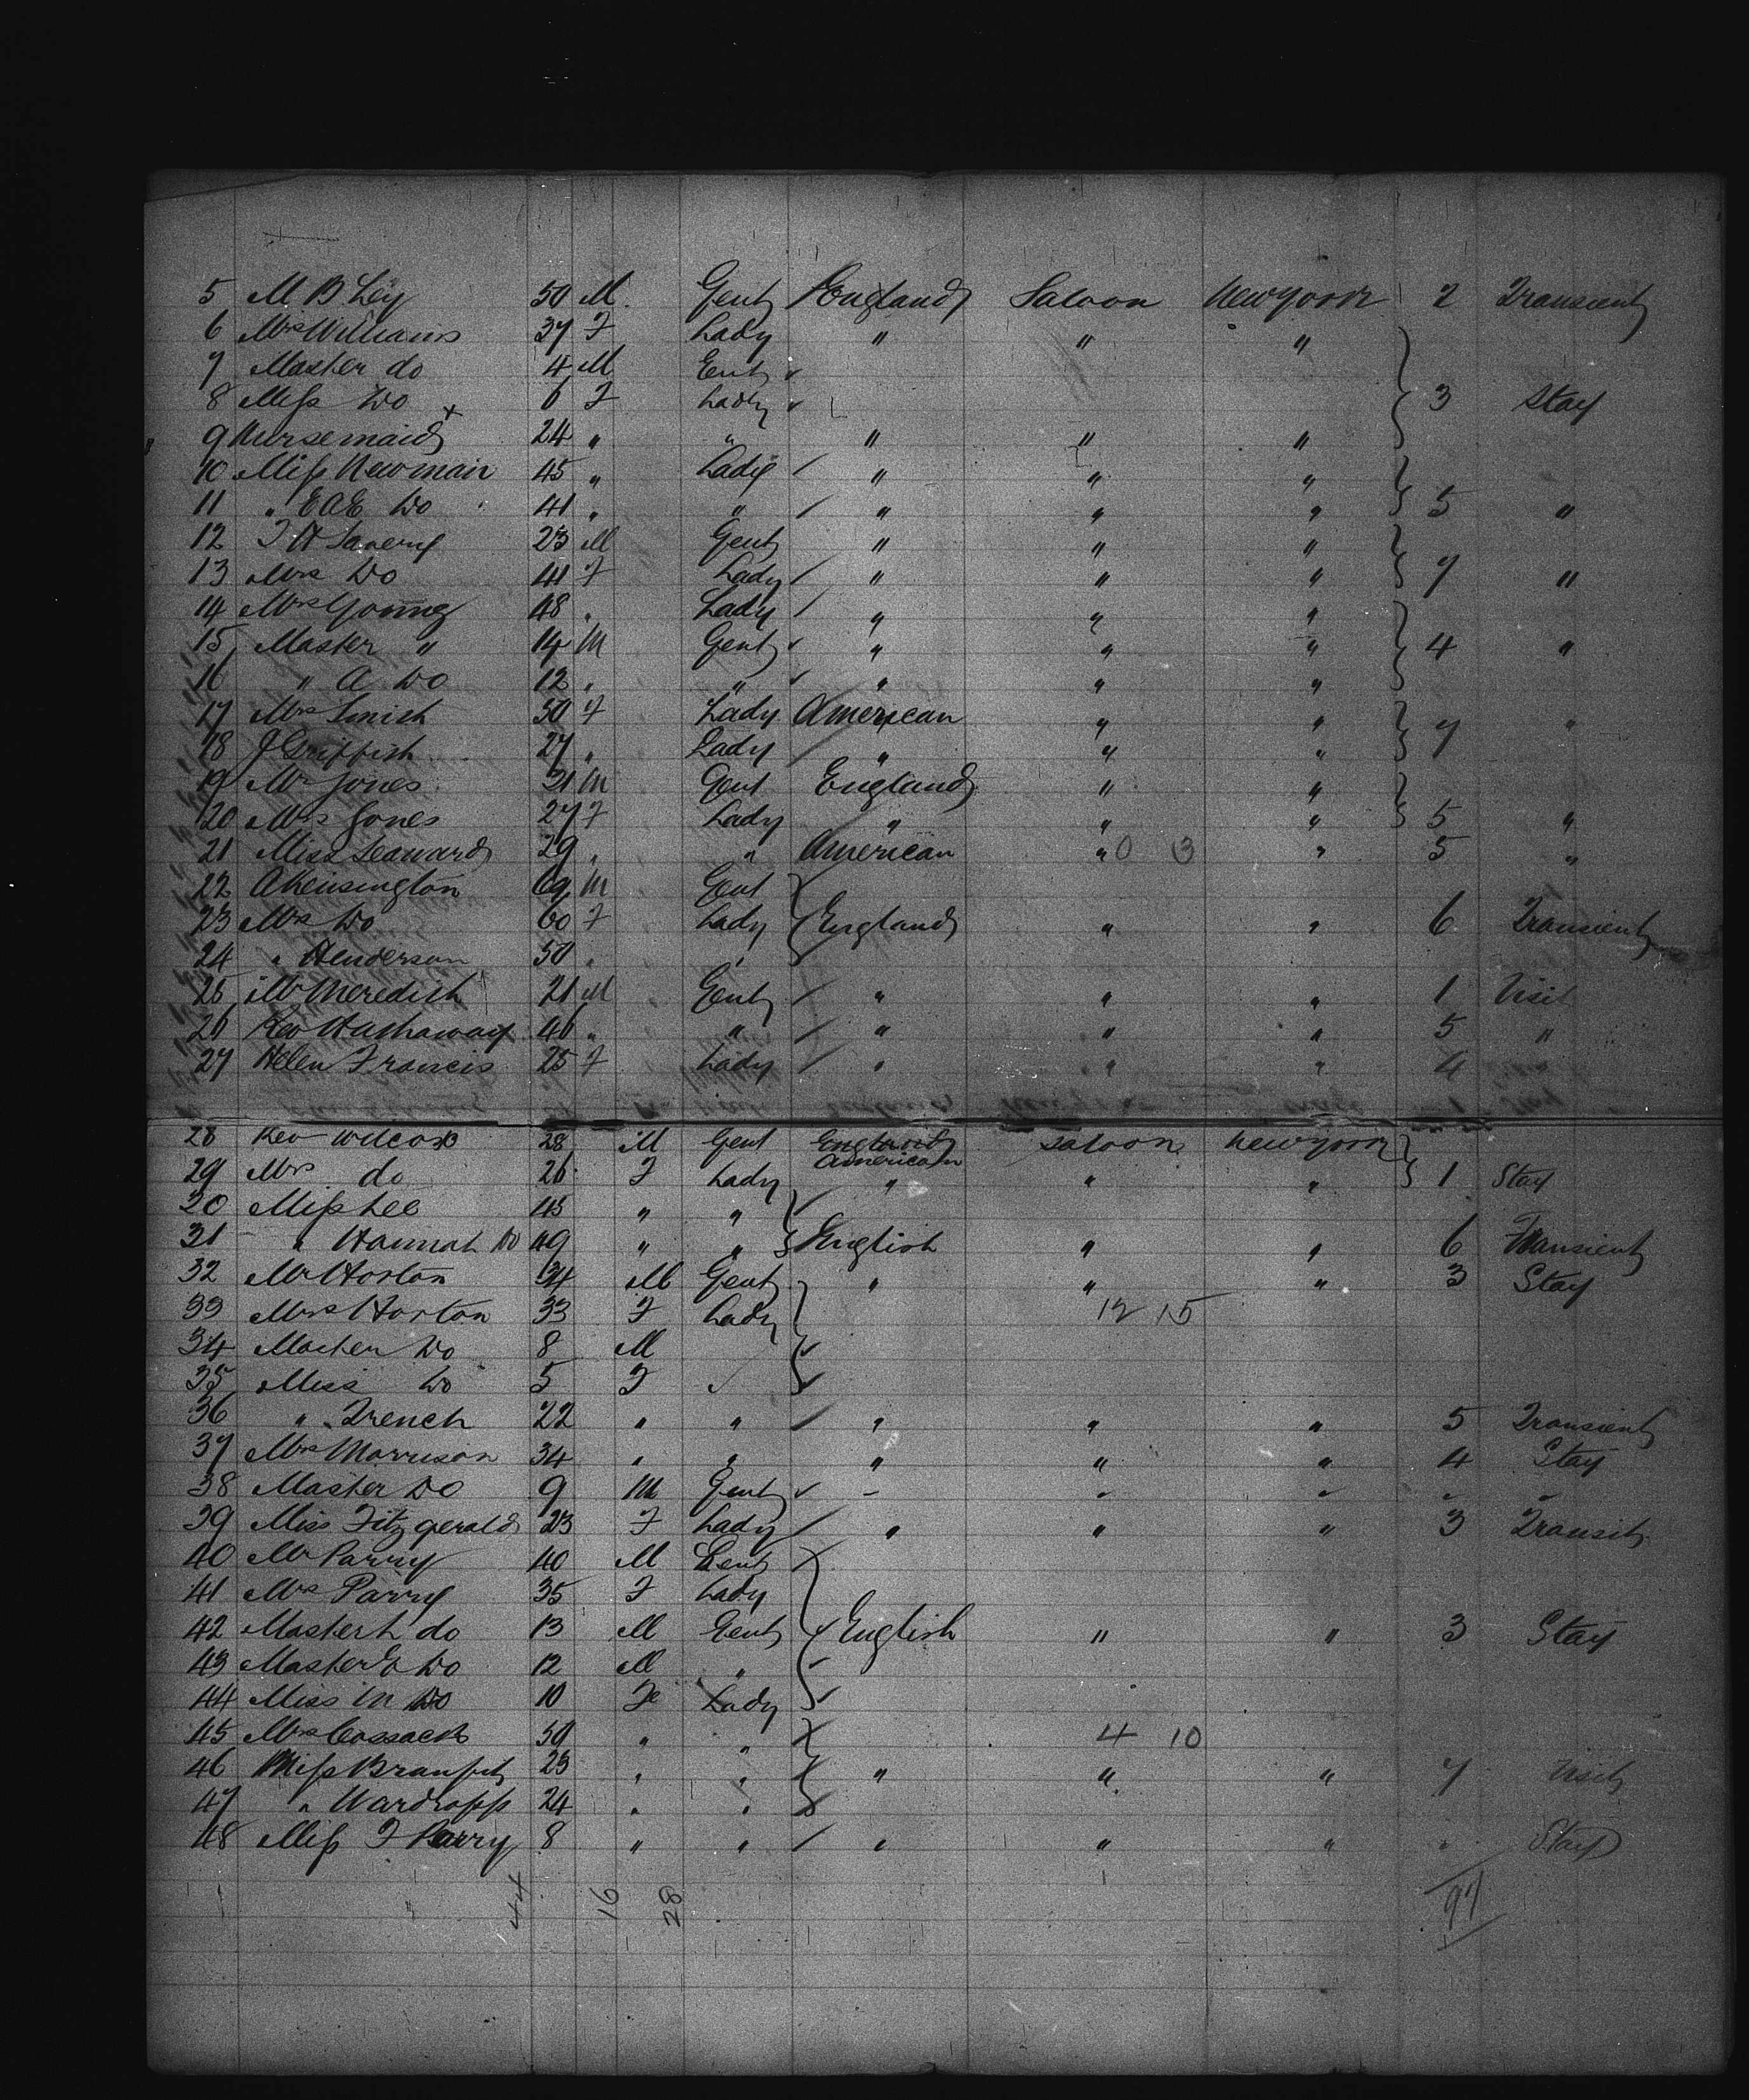 5 M B Ley 50 M. Gent England Saloon New York 2 Transient
6 Mrs Williams 37 F Lady " " "
7 Master do 4 M Gent
8 Miss Do 6 F Lady 3 Stay
9 Nursemaid 24 " " " " "
10 Miss Newman 45 " Lady " " "
11 " E A E Do 41 " " " " " 5 "
12 23 M Gent " " "
13 Mrs Do 41 F Lady " " " 7 "
14 Mrs Young 48 " Lady " " "
15 Master " 14 M Gent " " " 4 "
16 " A Do 12 " " " " "
17 Mrs Smith 50 F Lady American " "
18 J Griffith 27 " Lady " " " 7 "
19 Mr Jones 31 M Gent England " "
20 Mrs Jones 27 F Lady " " " 5 "
21 Miss Seaward 29 " " American " 0 3 " 5 "
22 A Kensington 69 M Gent
23 Mrs Do 60 F Lady England " " 6 Transient
24 " Henderson 50 " "
25 Mr Meredith 21 M Gent " " " 1 Visit
26 Rev Hathaway 46 " " " " " 5 "
27 Helen Francis 25 F Lady " " " 4
28 Rev Wilcox 28 M Gent England American Saloon New York
29 Mrs do 26 F Lady " " " 1 Stay
30 Miss Lee 45 " "
31 " Hannah Do 49 " " English " " 6 Transient
32 Mr Horton 34 M Gent " " " 3 Stay
33 Mrs Horton 33 F Lady 12 15
34 Master Do 8 M
35 Miss Do 5 F
36 " Trench 22 " " " " " 5 Transient
37 Mrs Morrison 34 " " " " " 4 Stay
38 Master Do 9 M Gent - " " " "
39 Miss Fitzgerald 23 F Lady " " " 3 Transit
40 Mr Parry 40 M Gent
41 Mrs Parry 35 F Lady
42 Master L do 13 M Gent English " " 3 Stay
43 Master E Do 12 M "
44 Miss M Do 10 Fe Lady
45 Mrs Cossack 50 " " 4 10
46 Miss 23 " " " " " 7 Visit
47 " Wardropp 24 " "
48 Miss F Parry 8 " " " " " " Stay
44 16 28 97